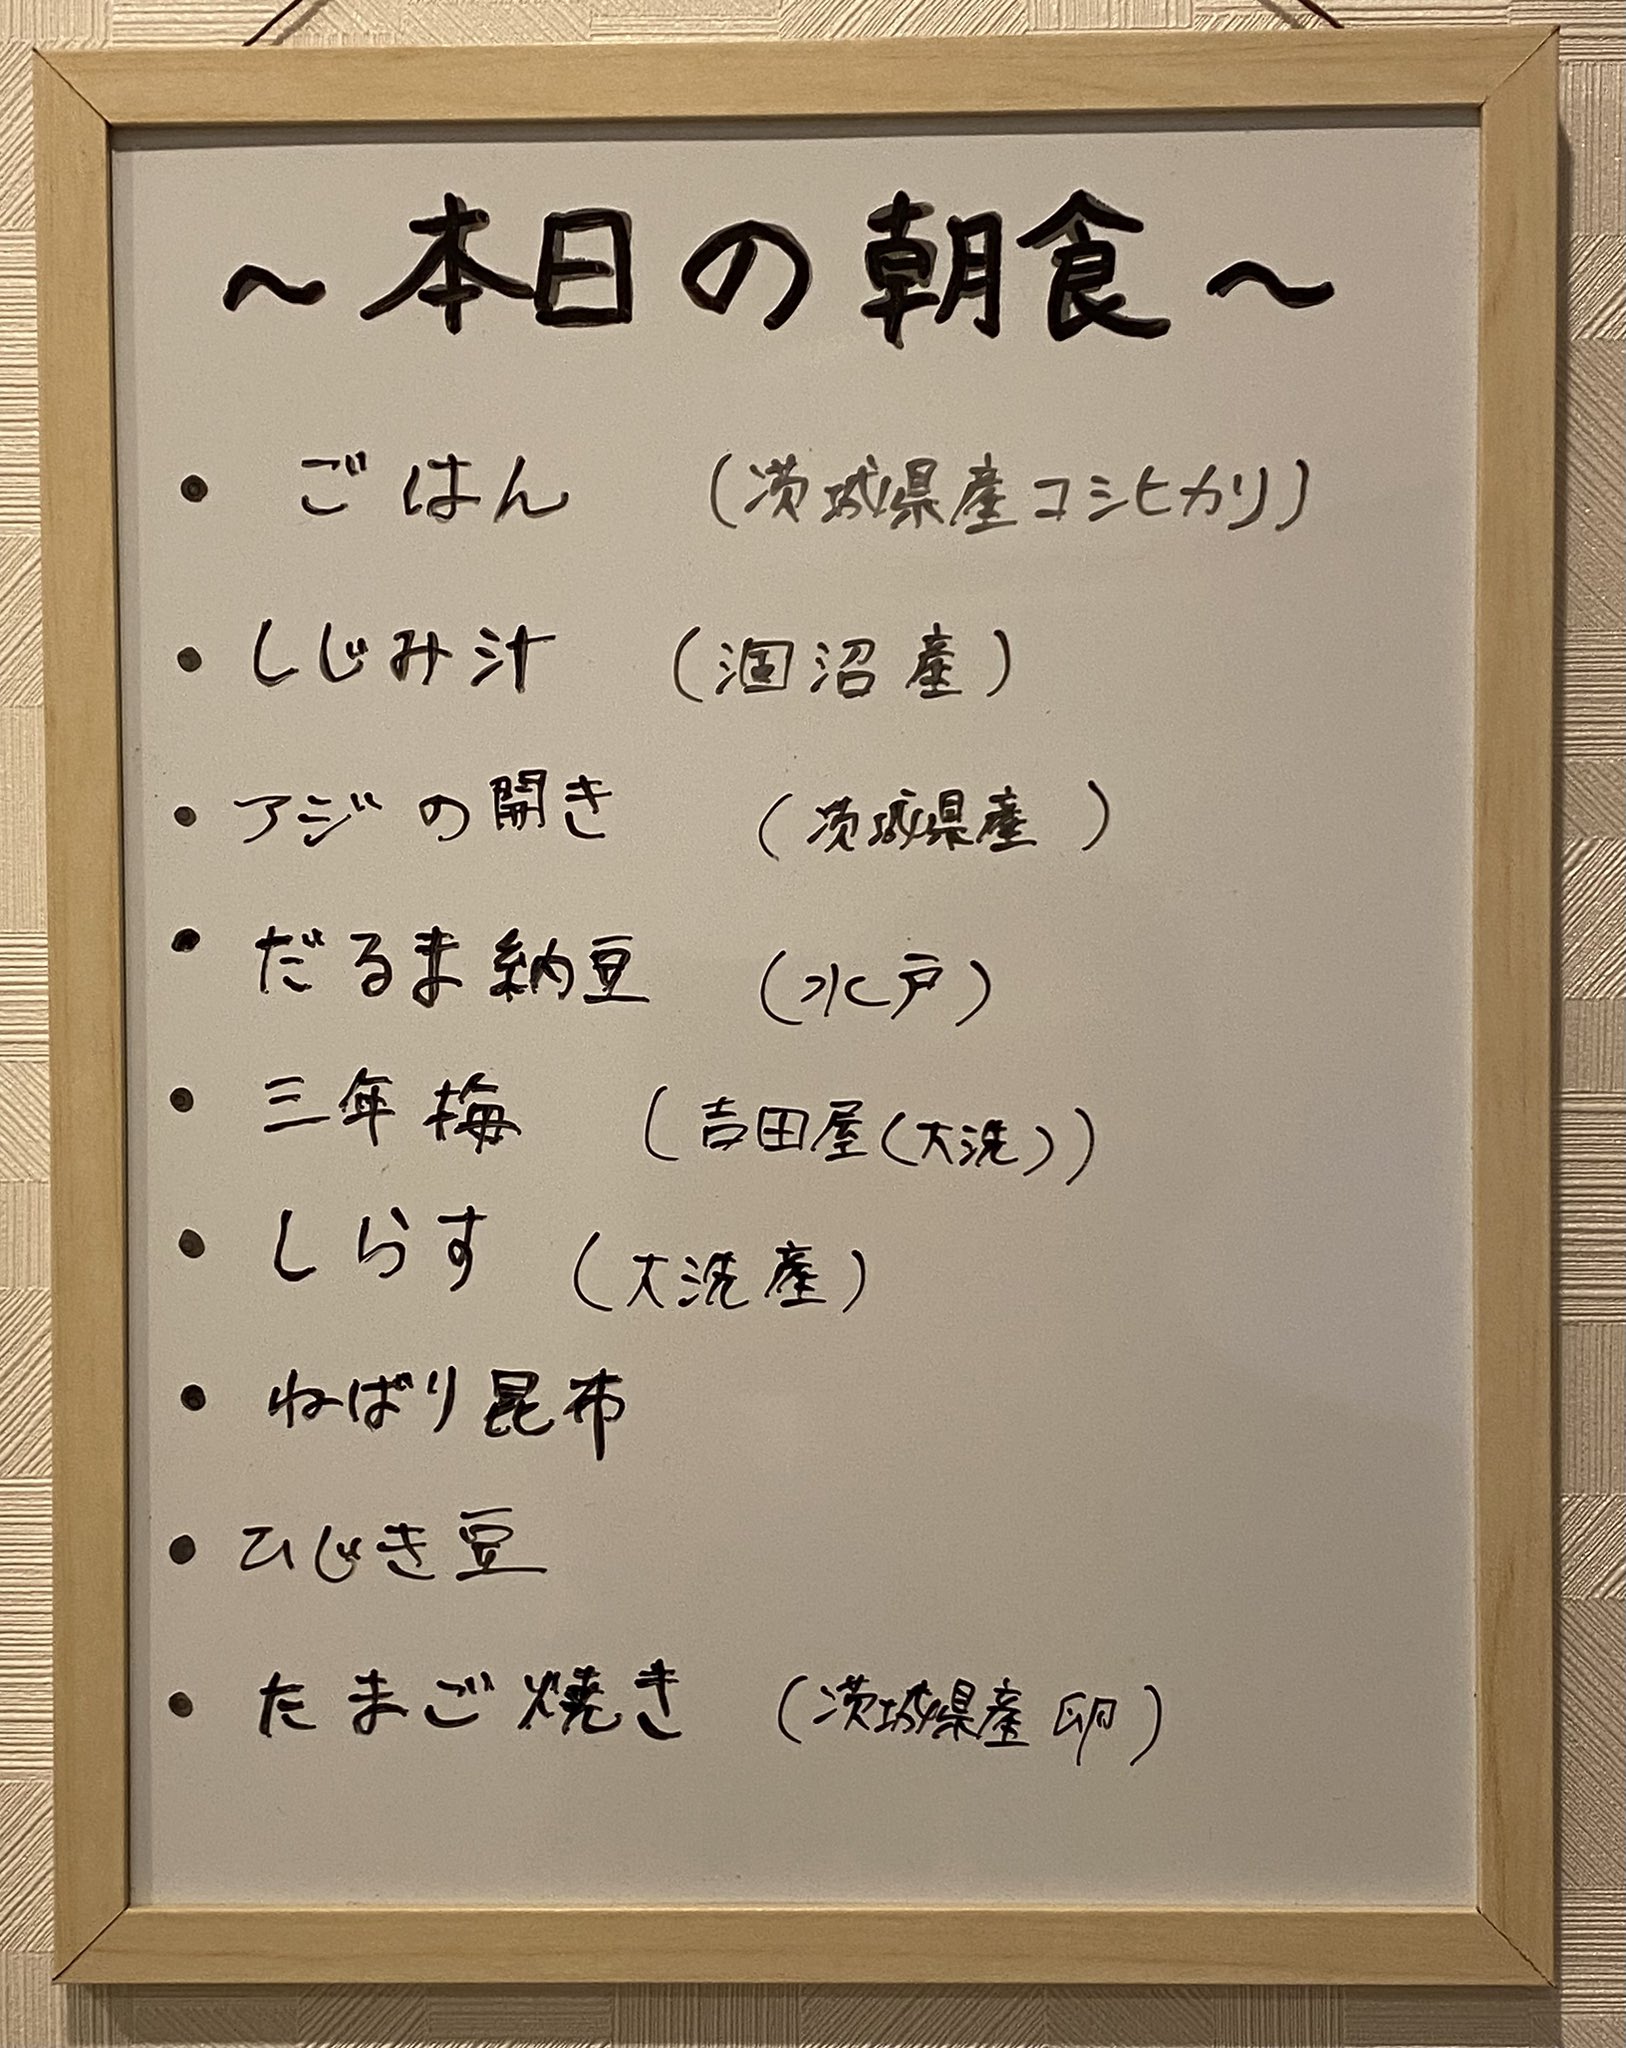 ～本日の朝食～
・ごはん （茨城県産コシヒカリ）
・しじみ汁 （涸沼産）
・アジの開き （茨城県産）
・だるま納豆 （水戸）
・三年梅 （吉田屋（大洗））
・しらす （大洗産）
・ねばり昆布
・ひじき豆
・たまご焼き （茨城県産卵）